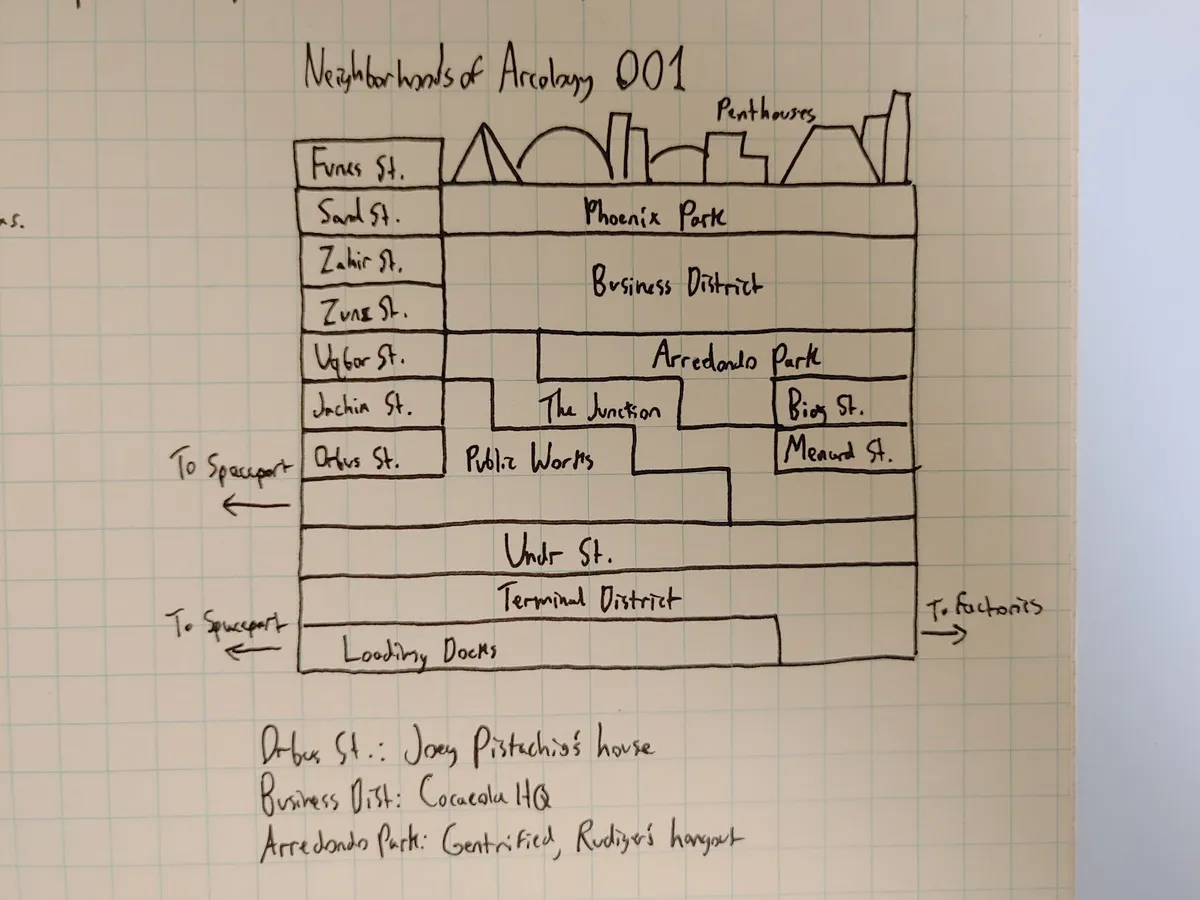 Neighborhoods of Arcology 001
Penthouses
Funes St.
Sand St.
Phoenix Park
Zahir St.
Business District
Zunz St.
Uqbar St.
Arredondo Park
Jachin St.
The Junction
Bioy St.
Orbus St.
Public Works
Menard St.
To Spaceport
Undr St.
Terminal District
To Spaceport
To Factories
Loading Docks
Orbus St.: Joey Pistachio's house
Business Dist: Cocacola HQ
Arredondo Park: Gentrified, Rudiger's hangout